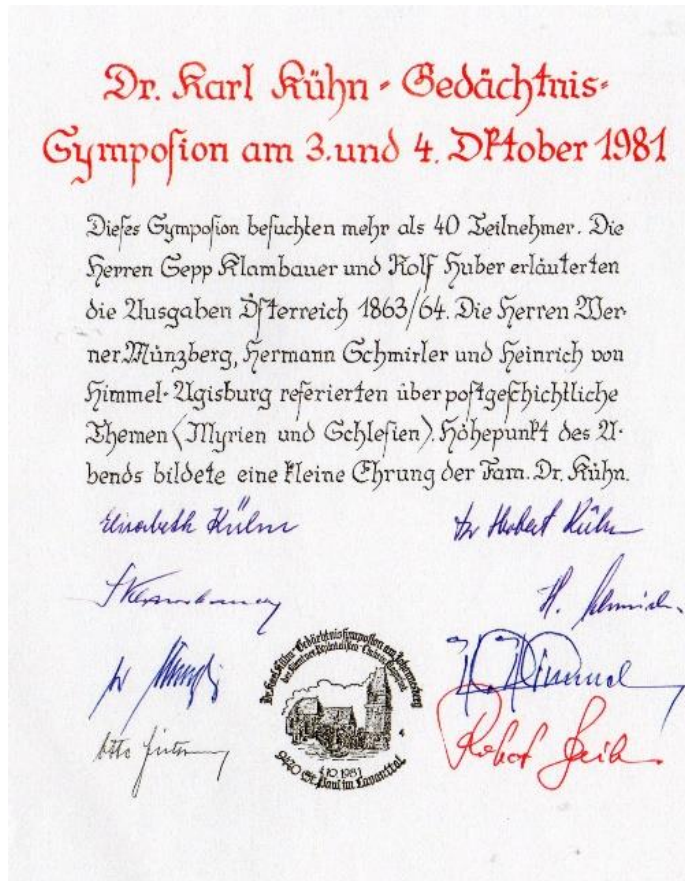 Dr. Karl Kühn - Gedächtnis-
Symposion am 3. und 4. Oktober 1981
Dieses Symposion besuchten mehr als 40 Teilnehmer. Die
Herren Sepp Klambauer und Rolf Huber erläuterten
die Ausgaben Österreich 1863/64. Die Herren Wer-
ner Münzberg, Hermann Schmirler und Heinrich von
Himmel-Agisburg referierten über postgeschichtliche
Themen (Illyrien und Schlesien). Höhepunkt des A-
bends bildete eine kleine Ehrung der Fam. Dr. Kühn.
Elisabeth Kühn
Dr Herbert Kühn
Dr. Karl Kühn-Gedächtnissymposion am Johannesberg
4.10.1981
9470 St. Paul im Lavanttal